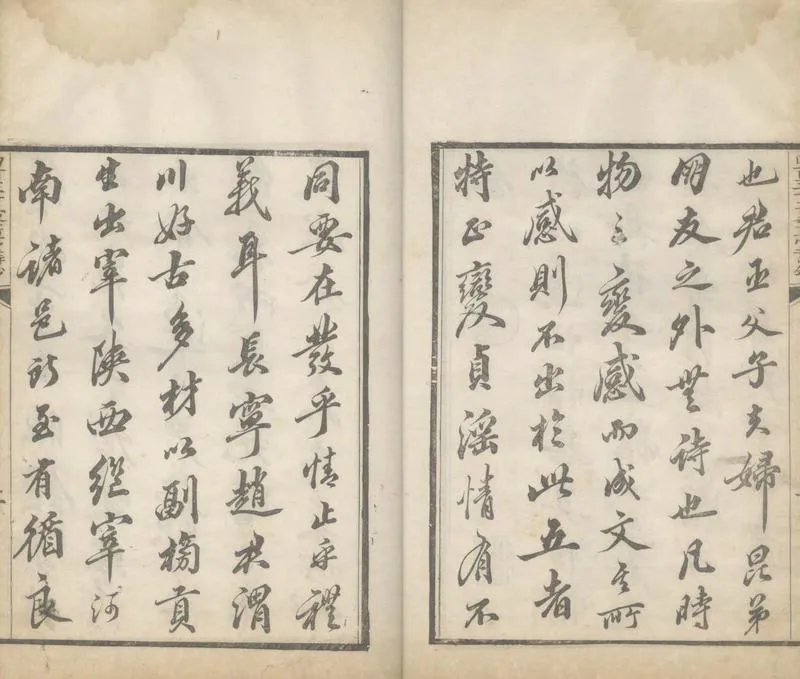 也君臣父子夫婦昆弟
朋友之外無詩也凡時
物之變感而成文其所
以感則不出於此五者
特正變貞淫情有不
同要在發乎情止乎禮
義耳長寧趙
川好古多材以副榜貢
生出宰陝西繼宰河
南諸邑所至有循良